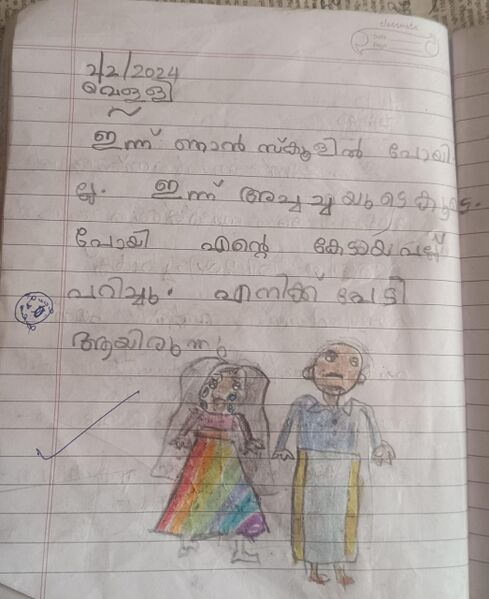 classmate
Date
Page
2/2/2024
വെള്ളി
ഇന്ന് ഞാൻ സ്കൂളിൽ പോയി
ല്ല. ഇന്ന് അച്ചച്ചയുടെ കൂടെ
പോയി എന്റെ കേടായ പല്ല്
പറിച്ചു. എനിക്ക് പേടി
ആയിരുന്നു